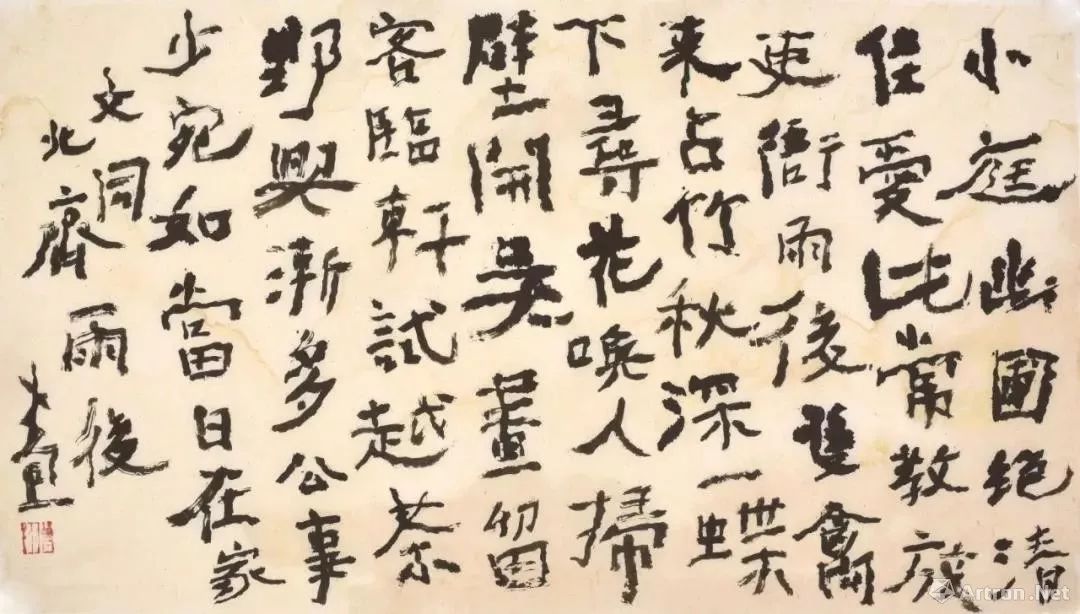 小庭幽圃絕清
佳愛此常教放
吏衙雨後雙禽
来占竹秋深一蝶
下尋花喚人掃
壁開吳畫留
客臨軒試越茶
野興漸多公事
少宛如當日在家
文同
北齋雨後
Artron.Net